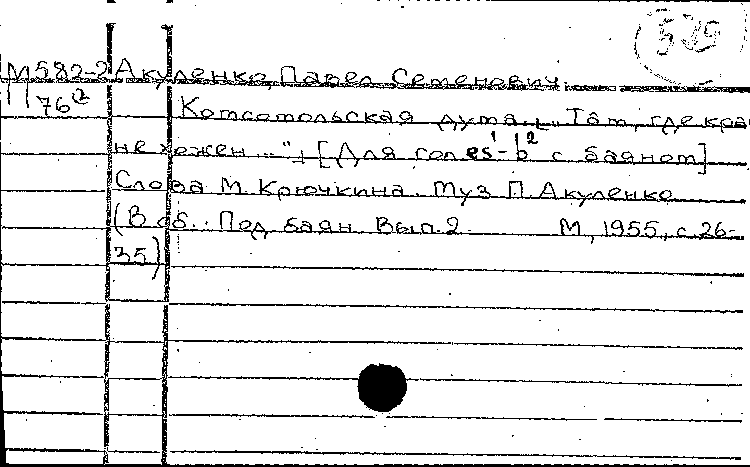 М582-2 Акуленко, Павел Семенович.
П 76² Комсомольская дума. „Там, где кра
не хожен ..." [Для гол. es¹-b² с баяном]
Слова М. Крючкина. Муз П. Акуленко
(В сб.: Под баян. Вып. 2. М, 1955, с 26-
35)